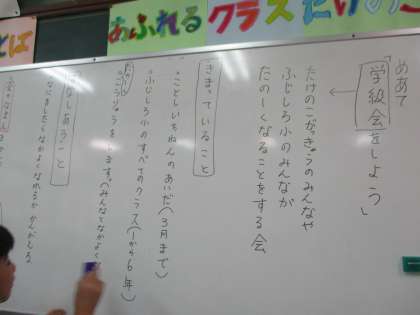 とば
あふれる クラス たけのこ
めあて
学級会をしよう」
たけのこがっきゅうのみんなや
ふじしろ小のみんなが
たのしくなることをする会
きまっていること
ことしいちねんのあいだ(3月まで)
ふじしろ小のすべてのクラス(1から6年)
をします。(みんなとなかよく
はなしあうこと
なにをしたらなかよくなれるか かんがえる